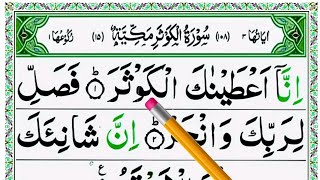 اٰيَاتُهَا ٣ (١٠٨) سُوْرَةُ الْكَوْثَرِ مَكِّيَّةٌ (١٥) رُكُوْعُهَا ١
اِنَّاۤ اَعْطَيْنٰكَ الْكَوْثَرَ ۝١ فَصَلِّ
لِرَبِّكَ وَانْحَرْ ۝٢ اِنَّ شَانِئَكَ